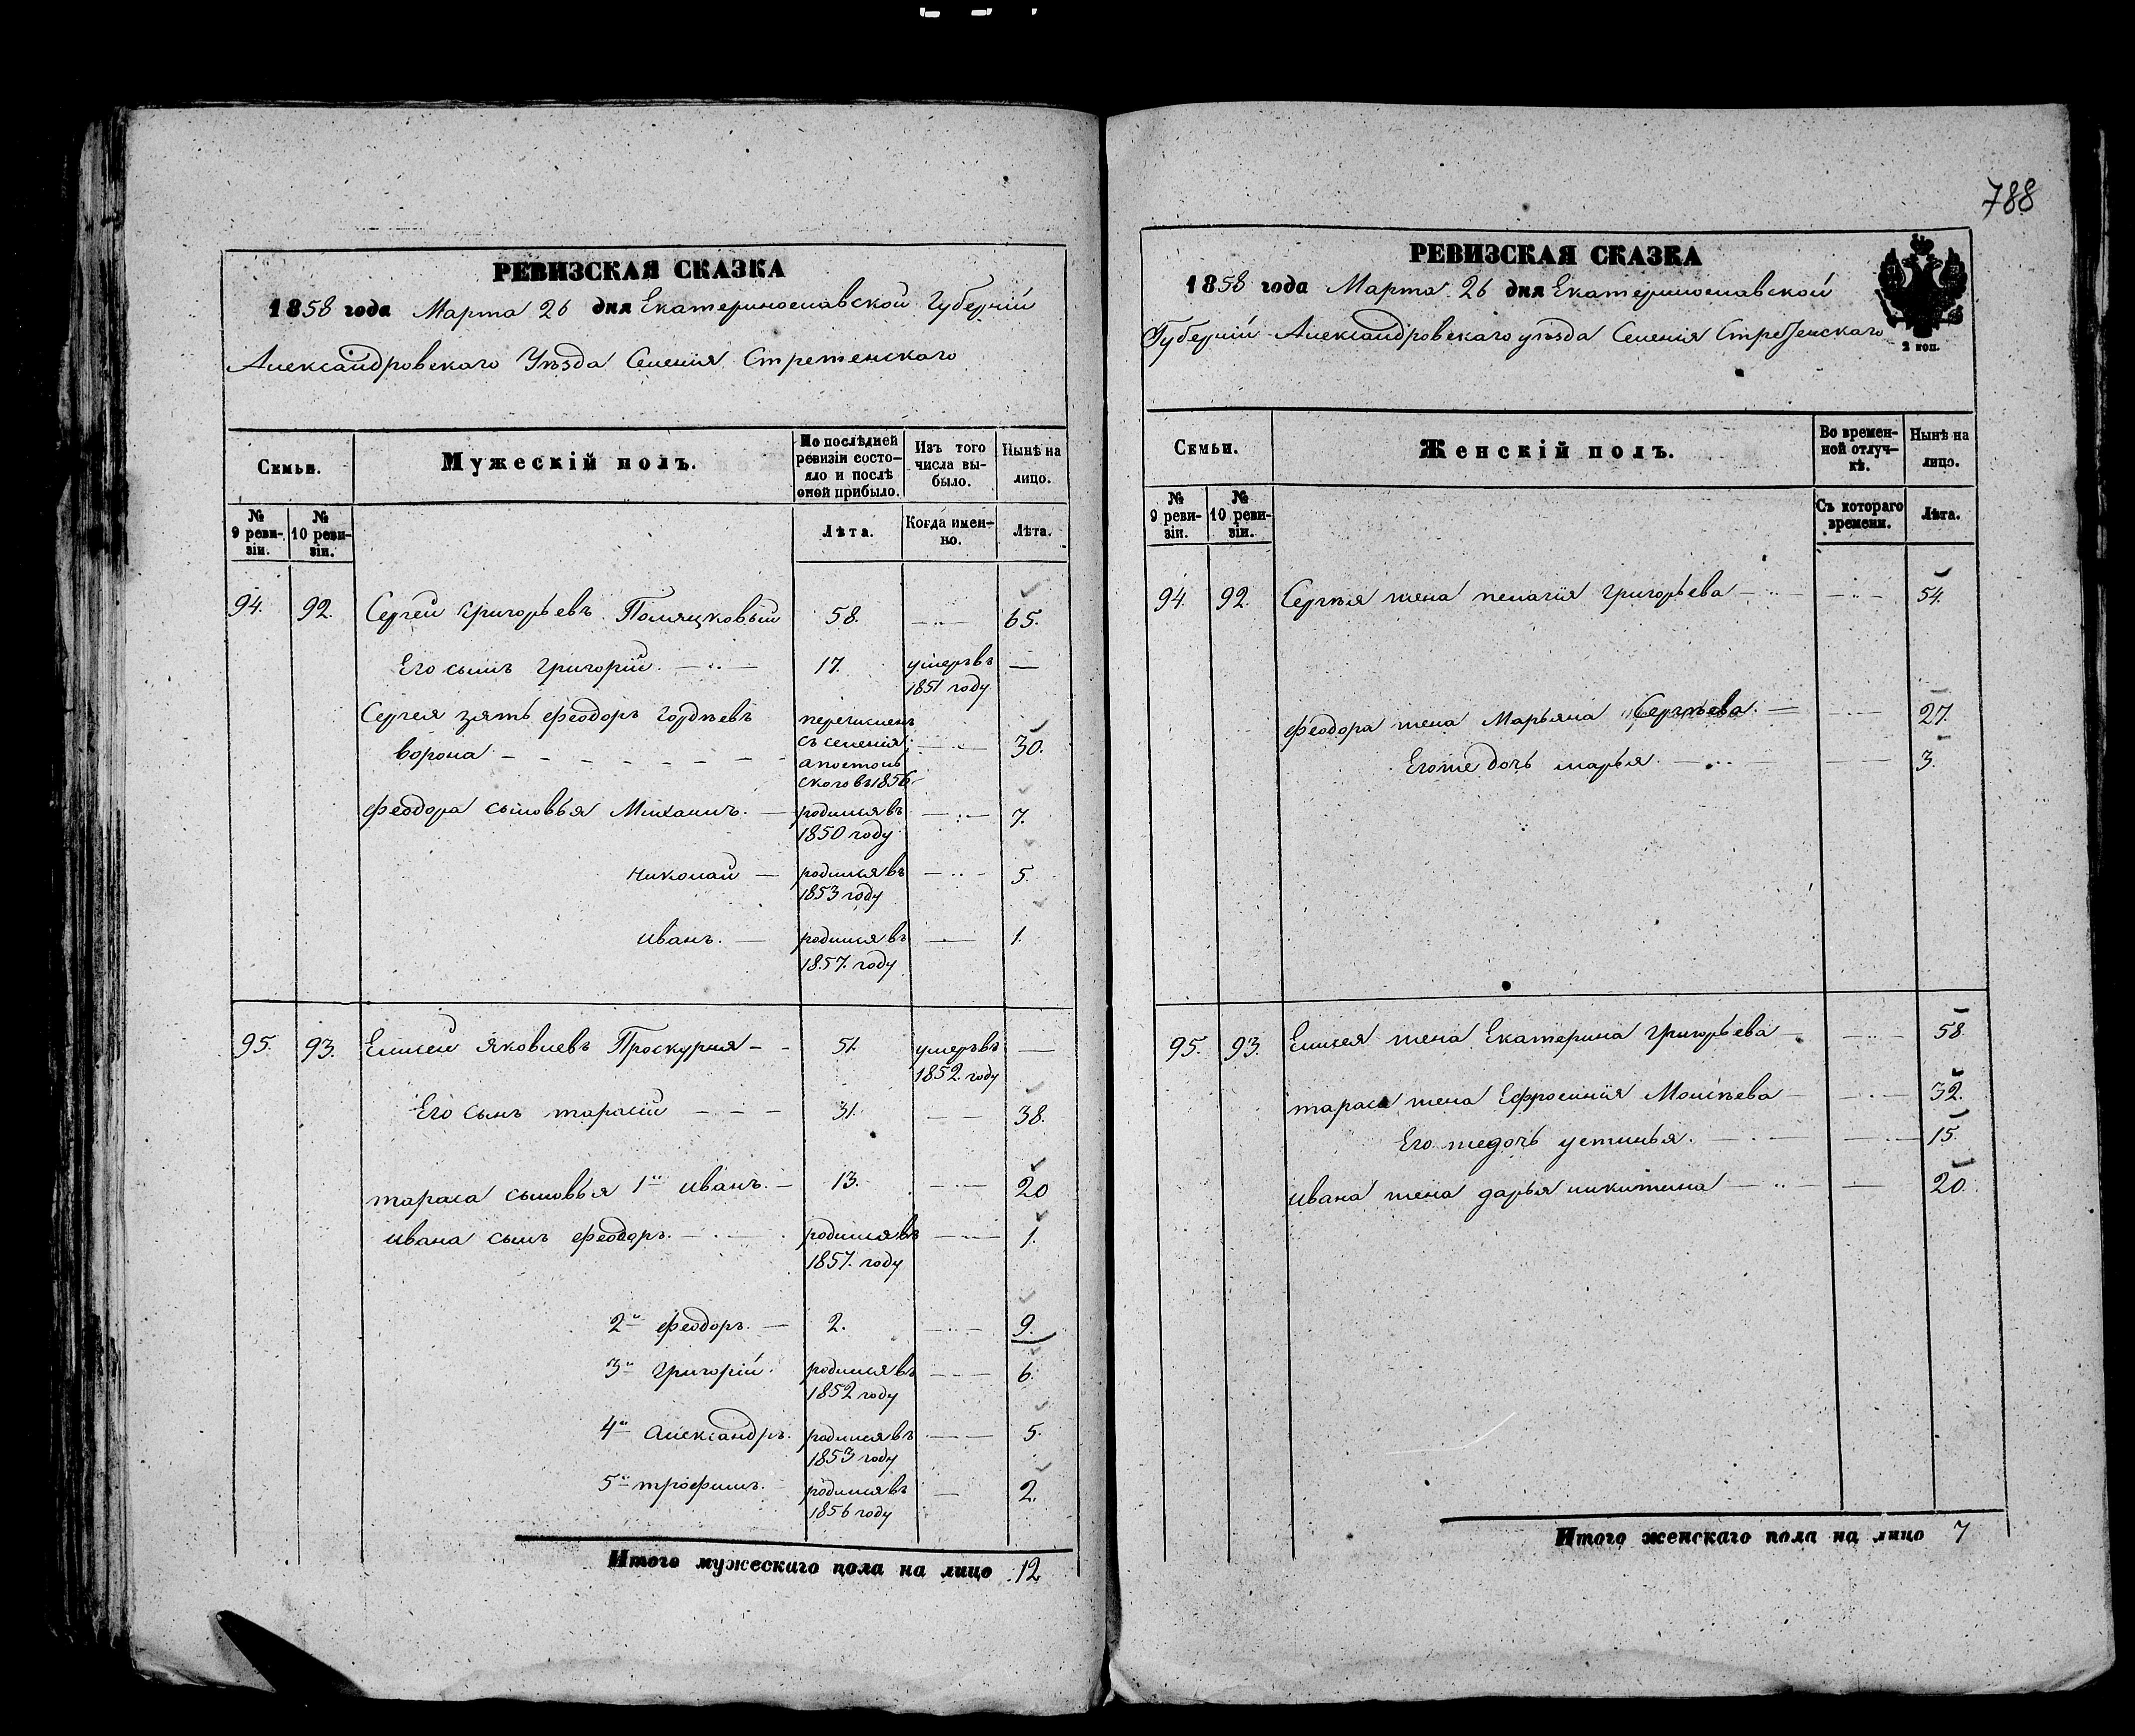 788
РЕВИЗСКАЯ СКАЗКА
1858 года Марта 26 дня Екатеринославской Губерніи
Александровскаго Уѣзда Селенія Стретенскаго
Семьи.
Мужескій полъ.
По послѣдней ревизіи состо-
яло и послѣ оной прибыло.
Изъ того числа вы-
было.
Нынѣ на лицо.
№ 9 реви-
зіи.
№ 10 реви-
зіи.
Лѣта.
Когда имен-
но.
Лѣта.
94. 92. Сергей Григорьевъ 58. 65.
Его сынъ Григорій. 17. умеръ въ —
1851 году
Сергея зять Феодоръ Гордѣевъ перечисленъ
Ворона съ селенія 30.
апостоль
скаго въ 1856
Феодора сыновья Михаилъ. родился въ 7.
1850 году
Николай — родился въ 5.
1853 году
Иванъ. — родился въ 1.
1857. году
95. 93. Елисей Яковлевъ Проскурня 51. умеръ въ —
1852. году
Его сынъ Тарасій 31. 38.
Тараса сыновья 1й Иванъ. 13. 20
Ивана сынъ Феодоръ. родился въ 1.
1857. году
2й Феодоръ. — 2. 9.
3й Григорій. родился въ 6.
1852 году
4й Александръ. родился въ 5.
1853 году
5й Трофимъ. родился въ 2.
1856 году
Итого мужескаго пола на лицо 12
РЕВИЗСКАЯ СКАЗКА
1858 года Марта 26 дня Екатеринославской
Губерніи Александровскаго уѣзда Селенія Стретенскаго
2 коп.
Семьи.
Женскій полъ.
Во времен-
ной отлуч-
кѣ.
Нынѣ на лицо.
№ 9 реви-
зіи.
№ 10 реви-
зіи.
Съ котораго времени.
Лѣта.
94. 92. Сергѣя жена Пелагія Григорьева 54.
Феодора жена Марьяна Сергѣева 27.
Его же дочь Марья. 3.
95. 93. Елисея жена Екатерина Григорьева 58.
Тараса жена Ефросинія Моисѣева 32.
Его же дочь Устинья. 15.
Ивана жена Дарья Никитина 20.
Итого женскаго пола на лицо 7